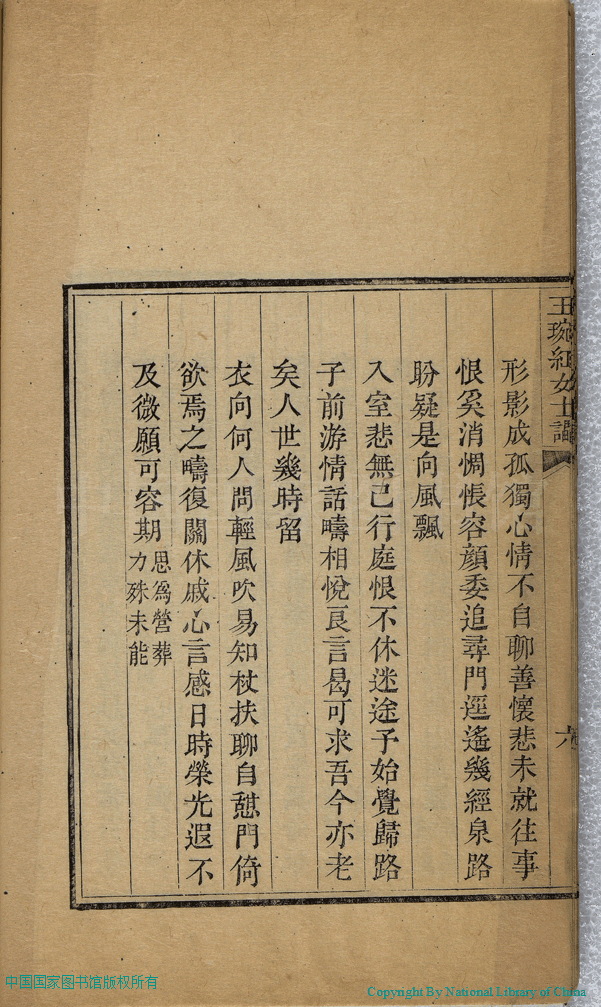 王琬紅女士
六
形影成孤獨心情不自聊善懷悲未就往事
恨奚消惆悵容顔委追尋門逕遙幾經泉路
盼疑是向風飄
入室悲無已行庭恨不休迷途予始覺歸路
子前游情話疇相悅良言曷可求吾今亦老
矣人世幾時留
衣向何人問輕風吹易知杖扶聊自憇門倚
欲焉之疇復關休戚心言感日時榮光遐不
及微願可容期思爲營葬
力殊未能
中国国家图书馆版权所有
Copyright By National Library of China